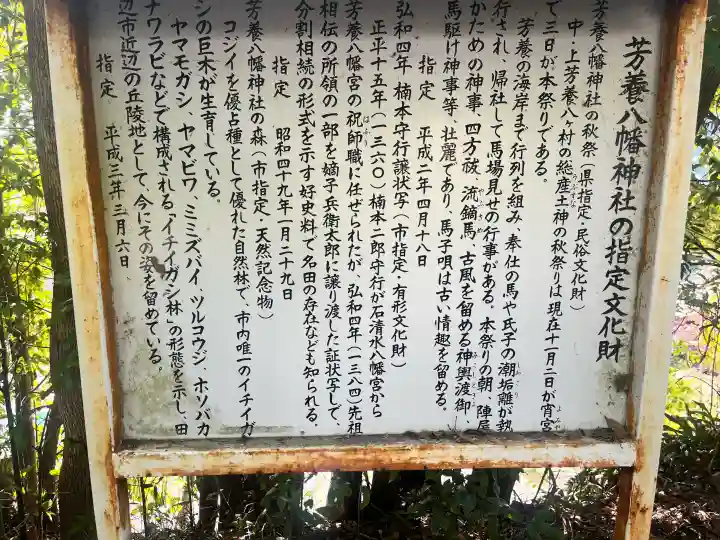 芳養八幡神社の指定文化財
芳養八幡神社の秋祭（県指定・民俗文化財）
中・上芳養八ヶ村の総産土神の秋祭りは現在十一月二日が宵宮
で三日が本祭りである。
芳養の海岸まで行列を組み、奉仕の馬や氏子の潮垢離が執
行され、帰社して馬場見せの行事がある。本祭りの朝、陣屋
がための神事、四方破、流鏑馬、古風を留める神輿渡御、
馬駆け神事等、壮麗であり、馬子唄は古い情趣を留める。
指定　平成二年四月十八日
弘和四年　楠本守行譲状写（市指定・有形文化財）
正平十五年（一三六〇）楠本二郎守行が石清水八幡宮から
芳養八幡宮の祝師職に任ぜられたが、弘和四年（一三八四）先祖
相伝の所領の一部を嫡子兵衛太郎に譲り渡した証状写しで、
分割相続の形式を示す好史料で名田の存在なども知られる。
指定　昭和四十九年一月二十九日
芳養八幡神社の森（市指定・天然記念物）
コジイを優占種として優れた自然林で、市内唯一のイチイガ
シの巨木が生育している。
ヤマモガシ、ヤマビワ、ミミズバイ、ツルコウジ、ホソバカ
ナワラビなどで構成される「イチイガシ林」の形態を示し、田
辺市近辺の丘陵地として、今にその姿を留めている。
指定　平成三年三月六日